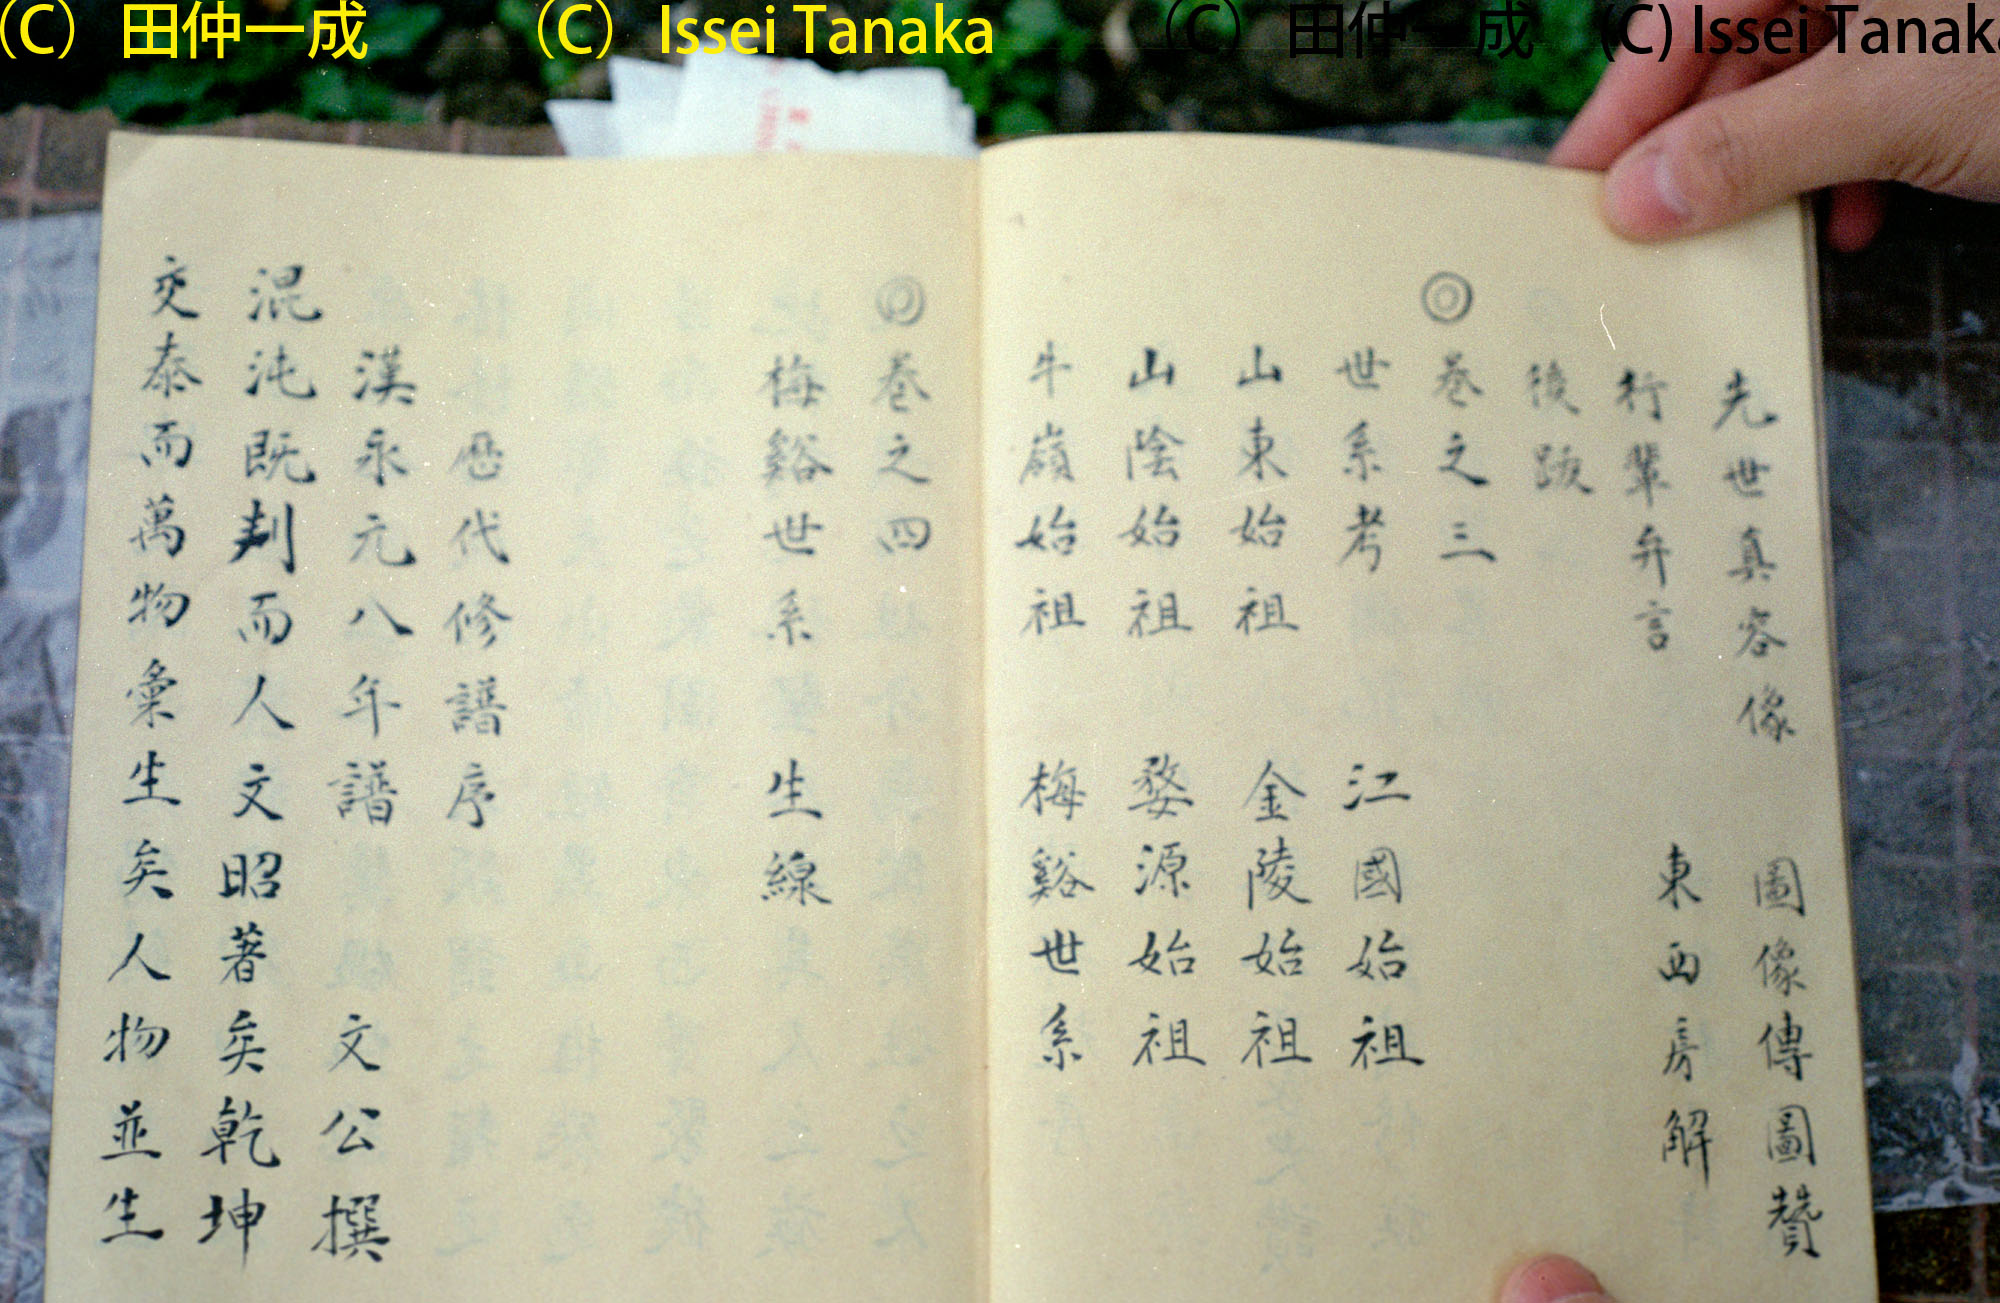 （C）田仲一成
（C）Issei Tanaka
（C）田仲一成
(C) Issei Tanaka
先世真容像　圖像傳圖贊
行輩弁言　東西房解
後跋
◎卷之三
世系考　江國始祖
山東始祖　金陵始祖
山陰始祖　婺源始祖
牛嶺始祖　梅谿世系
◎卷之四
梅谿世系　生線
歴代修譜序
漢永元八年譜　文公撰
混沌既判而人文昭著矣乾坤
交泰而萬物彙生矣人物並生